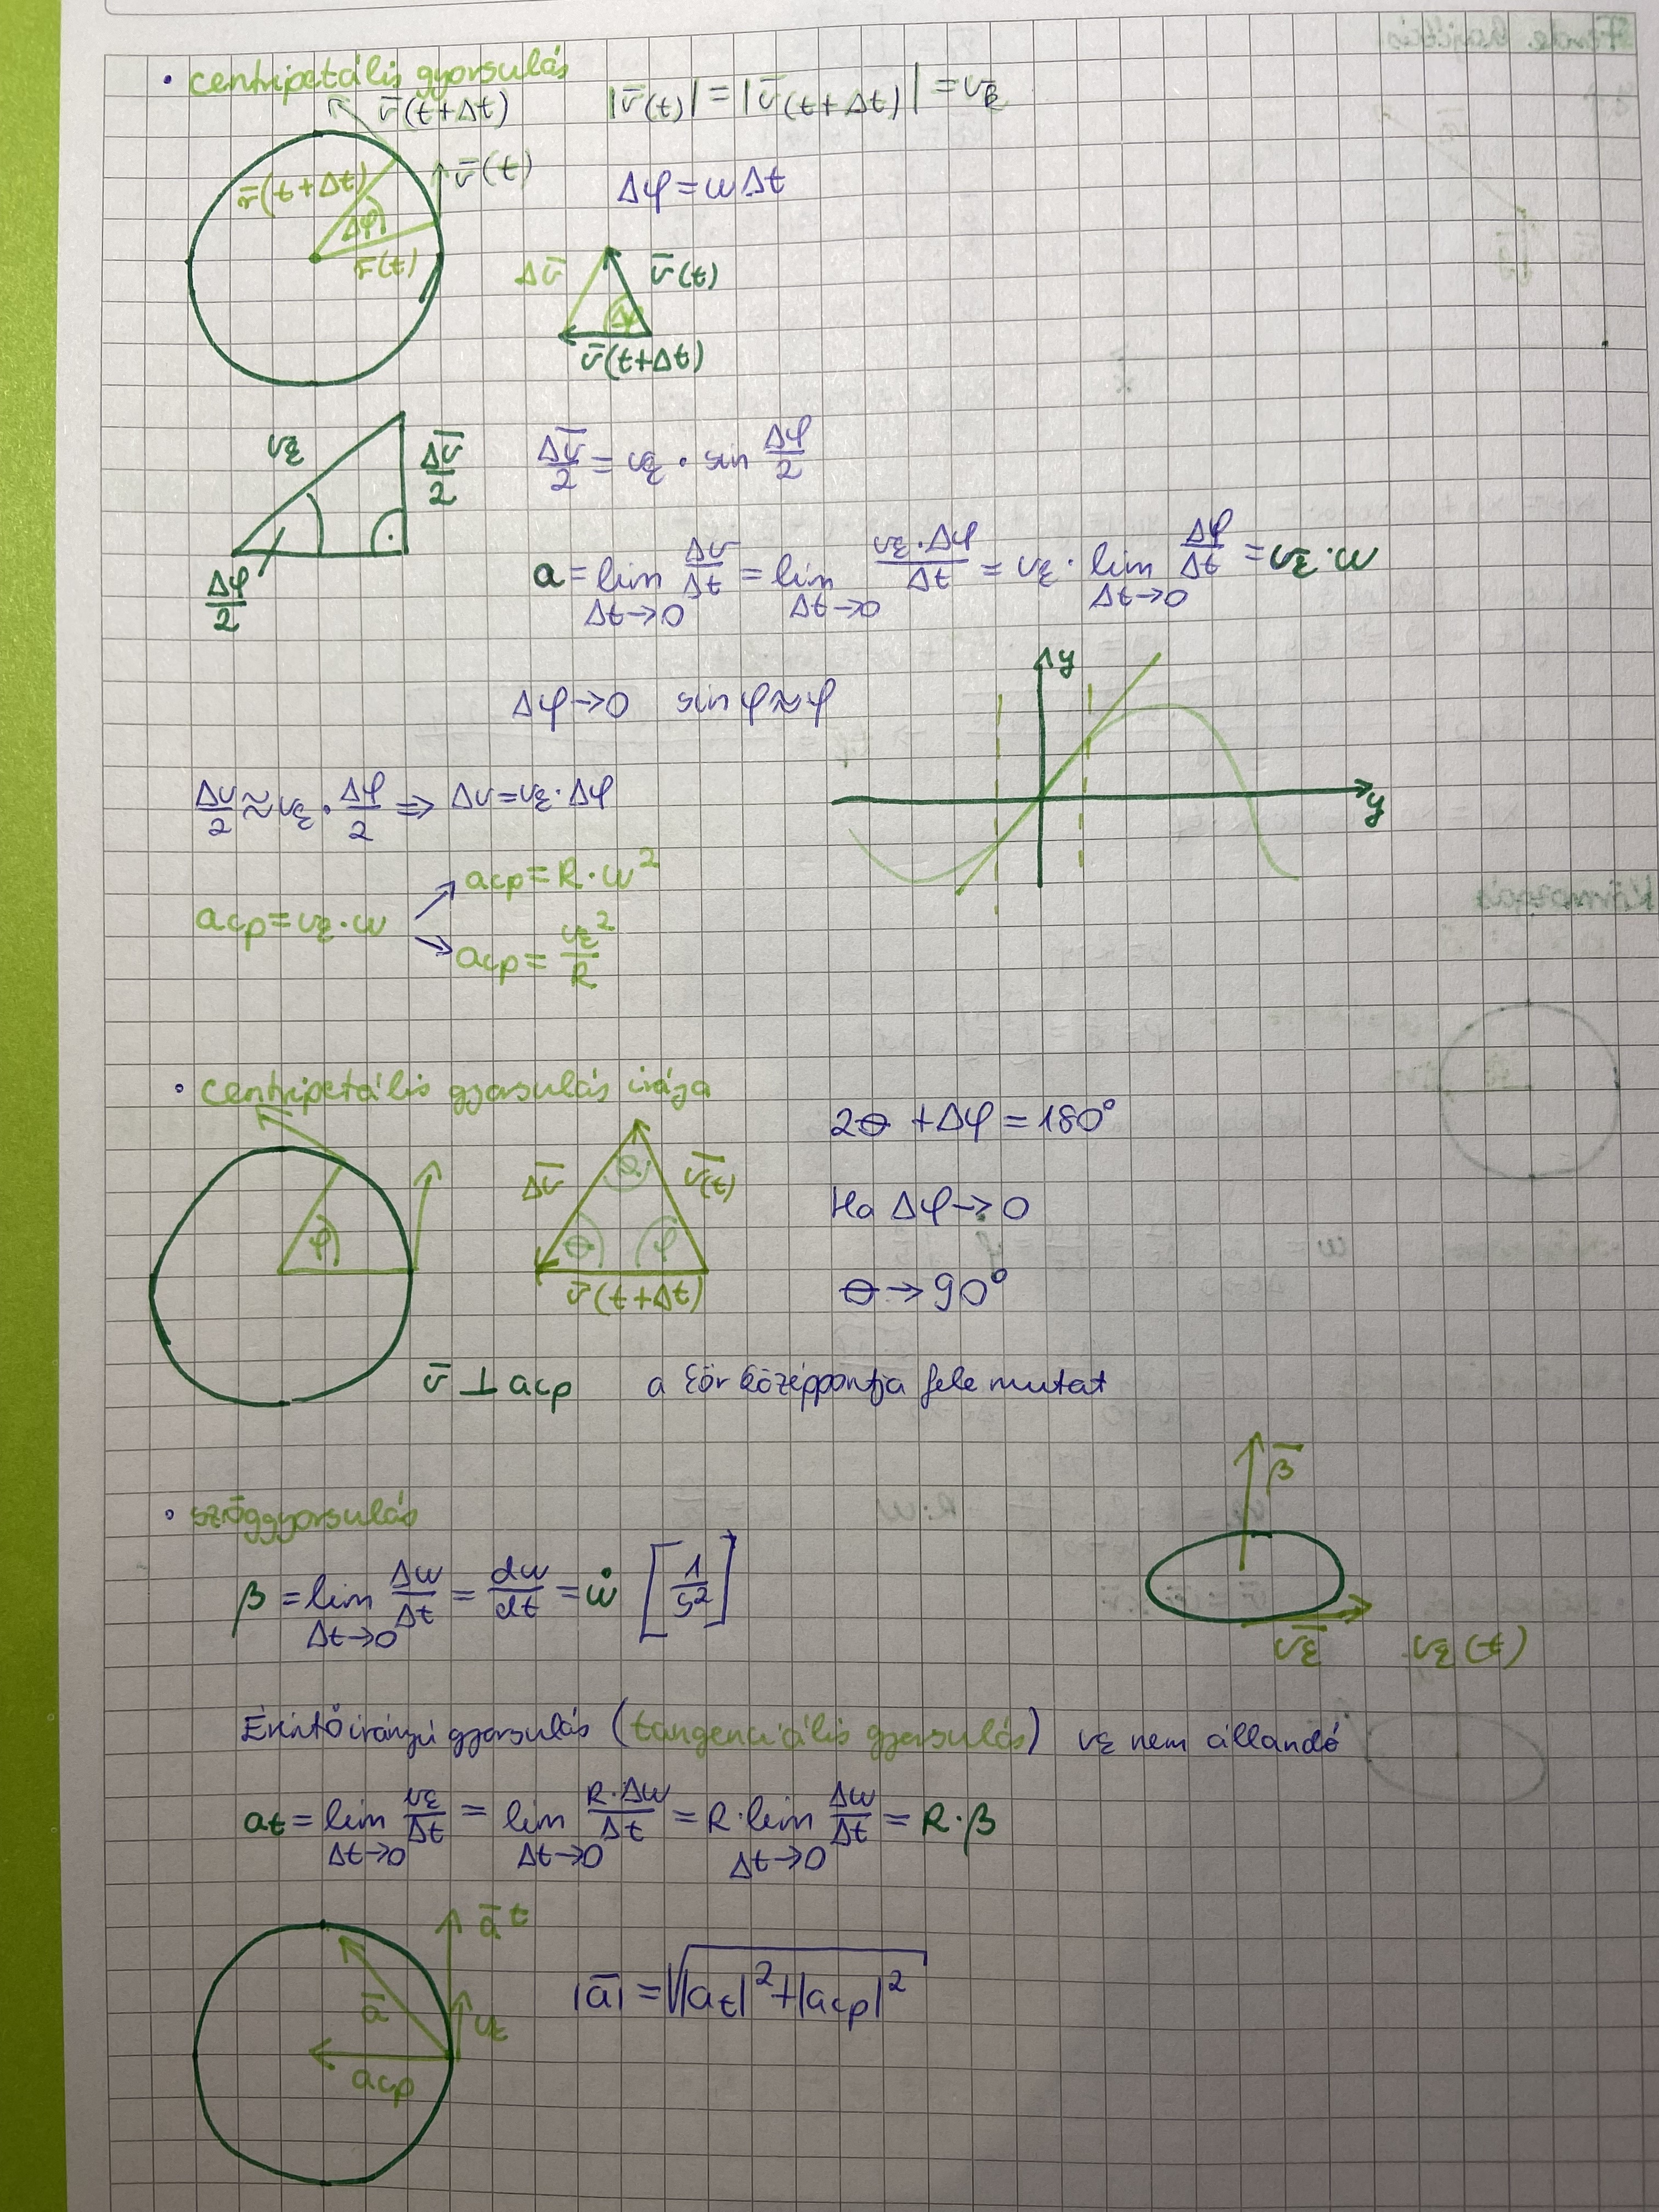 • centripetális gyorsulás
v̄(t+Δt)
|v̄(t)| = |v̄(t+Δt)| = vₖ
r̄(t+Δt)
v̄(t)
Δφ = ωΔt
Δφ
r̄(t)
Δv̄
v̄(t)
Δφ
v̄(t+Δt)
vₖ
Δv̄/2
Δv̄/2 = vₖ · sin Δφ/2
Δφ/2
a = lim Δt→0 Δv/Δt = lim Δt→0 vₖ·Δφ/Δt = vₖ · lim Δt→0 Δφ/Δt = vₖ·ω
y
Δφ→0 sin φ≈φ
y
Δv/2 ≈ vₖ · Δφ/2 ⇒ Δv = vₖ·Δφ
acp = R·ω²
acp = vₖ·ω
acp = vₖ²/R
• centripetális gyorsulás iránya
Δv̄
θ
v̄(t)
2θ + Δφ = 180°
φ
θ
φ
Ha Δφ→0
v̄(t+Δt)
θ→90°
v̄ ⊥ acp a kör középpontja fele mutat
β̄
• szöggyorsulás
β = lim Δt→0 Δω/Δt = dω/dt = ω̇ [1/s²]
v̄ₖ
vₖ(t)
Érintőirányú gyorsulás (tangenciális gyorsulás) vₖ nem állandó
at = lim Δt→0 vₖ/Δt = lim Δt→0 R·Δω/Δt = R·lim Δt→0 Δω/Δt = R·β
āt
ā
vₖ
|ā| = √|at|²+|acp|²
acp